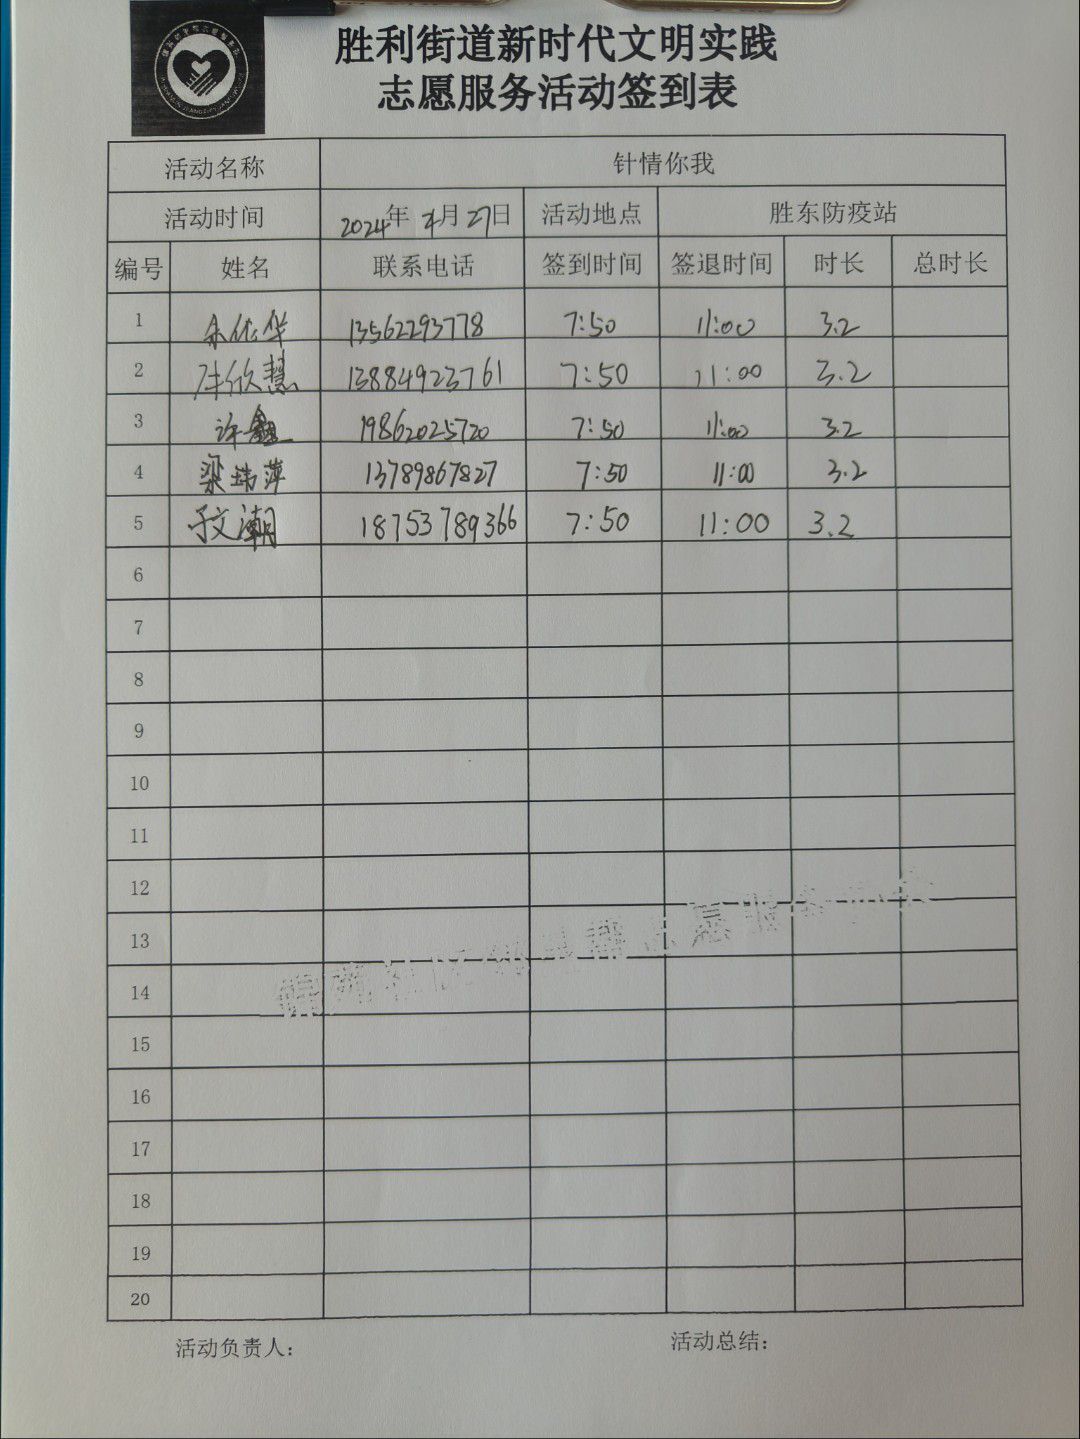 胜利街道新时代文明实践
志愿服务活动签到表
活动名称 针情你我
活动时间 2024年 月27日 活动地点 胜东防疫站
编号 姓名 联系电话 签到时间 签退时间 时长 总时长
1 13562293778 7:50 11:00 3.2
2 欣慧 13884923761 7:50 11:00 3.2
3 许鑫 19862025720 7:50 11:00 3.2
4 梁玮萍 13789867827 7:50 11:00 3.2
5 于文潮 18753789366 7:50 11:00 3.2
6
7
8
9
10
11
12
13
14
15
16
17
18
19
20
活动负责人: 活动总结: